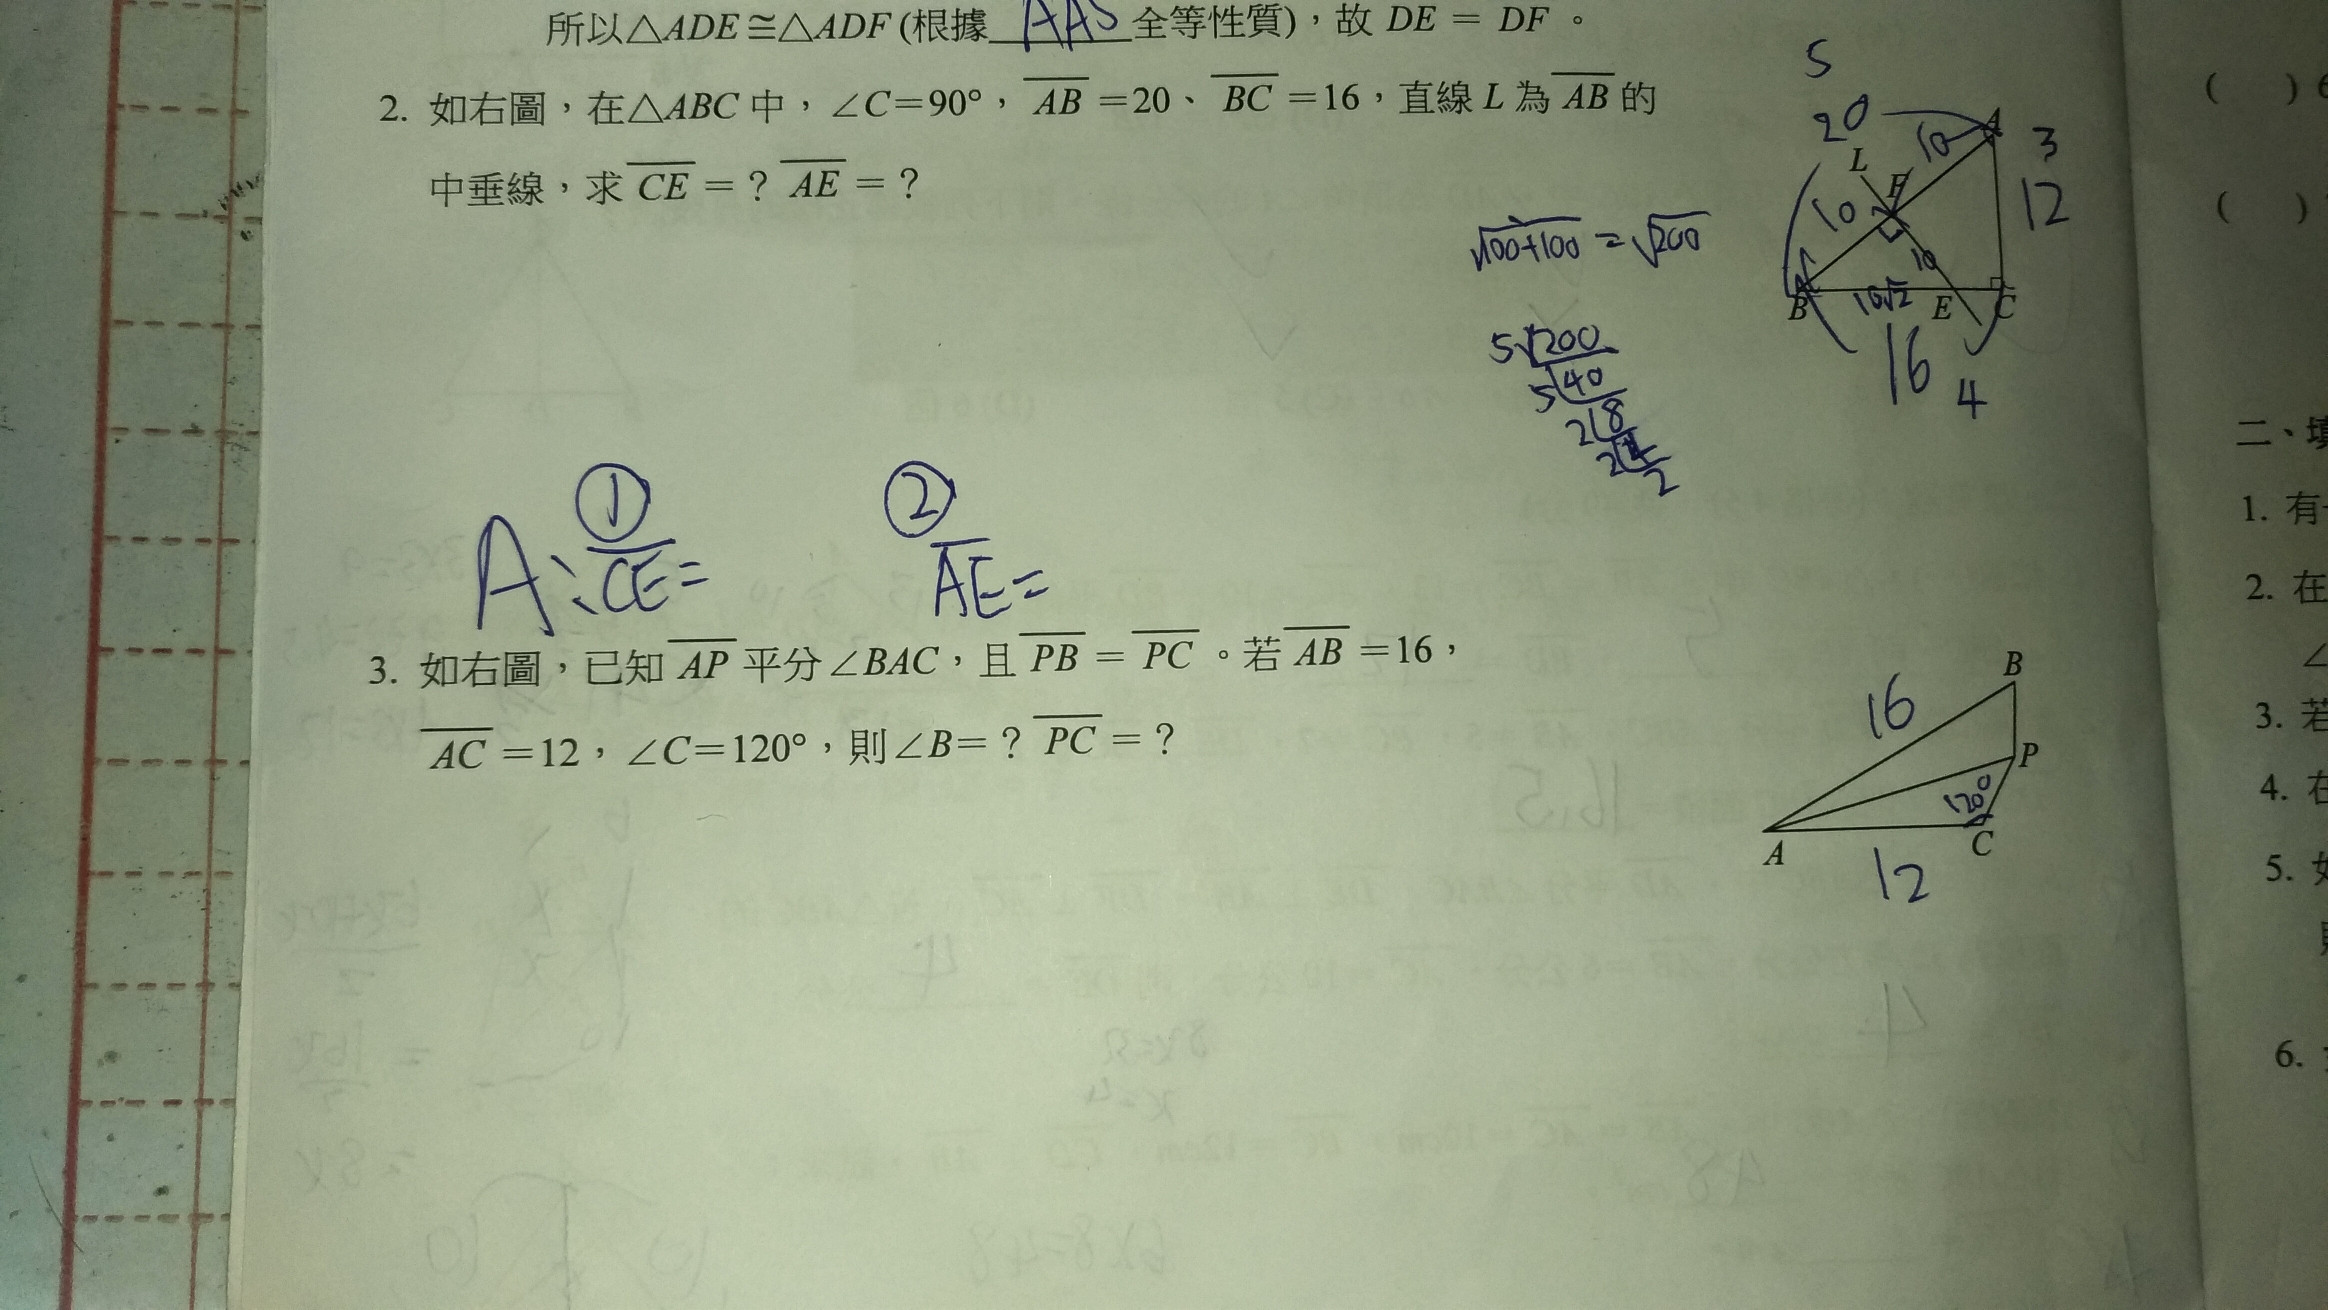 所以△ADE≅△ADF (根據 AAS 全等性質)，故 DE = DF。
2. 如右圖，在△ABC 中，∠C=90°，AB=20、BC=16，直線 L 為 AB 的
中垂線，求 CE = ? AE = ?
5
20
10
A
3
L
F
10
12
10
B
10√2
E
C
16
4
√100+100 = √200
5 200
5 40
2 8
2 4
2
① ②
A: CE= AE=
3. 如右圖，已知 AP 平分∠BAC，且 PB = PC。若 AB=16，
AC=12，∠C=120°，則∠B= ? PC = ?
B
16
P
120
A
C
12
( ) 6
( )
二、填
1. 有
2. 在
∠
3. 若
4. 在
5. 如
6.